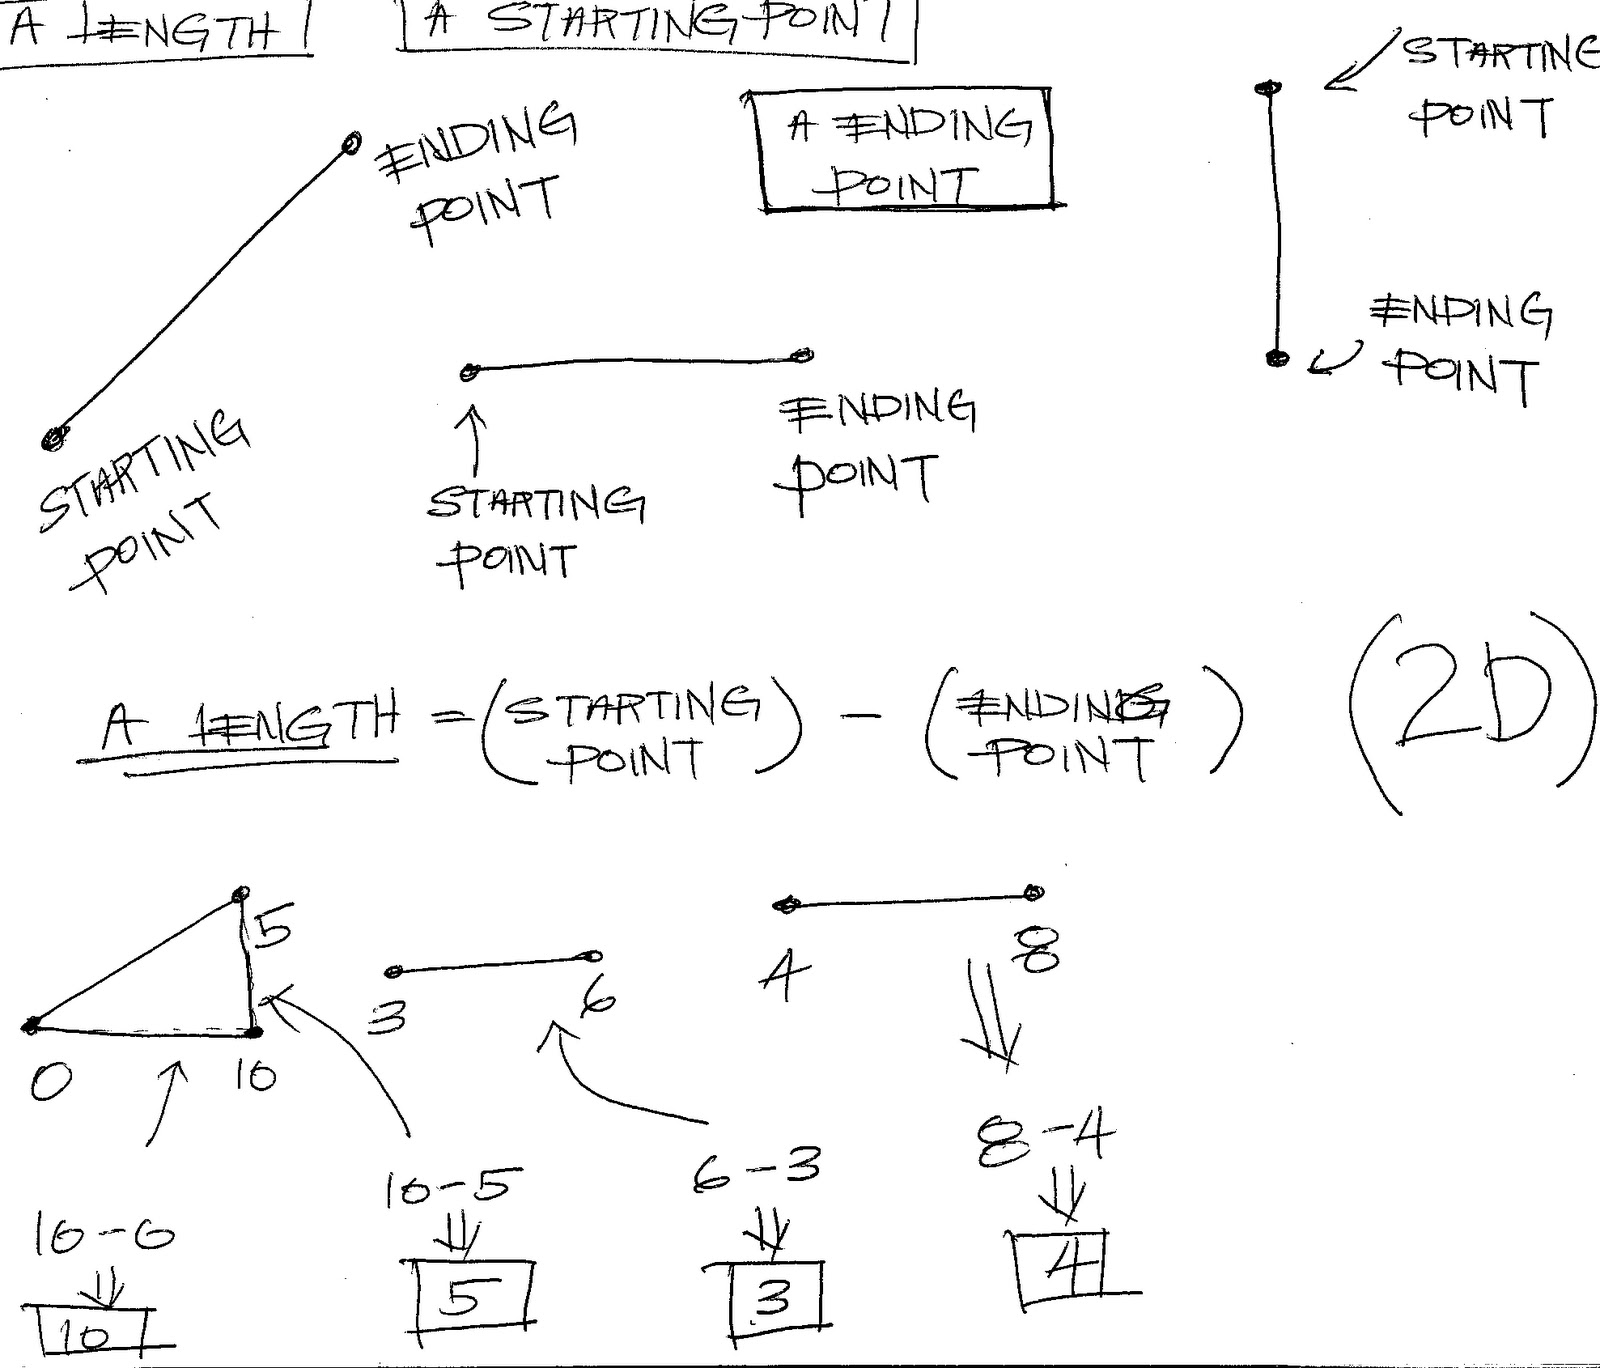 A LENGTH
A STARTING POINT
STARTING
POINT
ENDING
POINT
A ENDING
POINT
ENDING
POINT
ENDING
POINT
STARTING
POINT
STARTING
POINT
A LENGTH = (STARTING POINT) - (ENDING POINT) (2D)
5
0
10
3
6
4
8
10-0
10
10-5
5
6-3
3
8-4
4